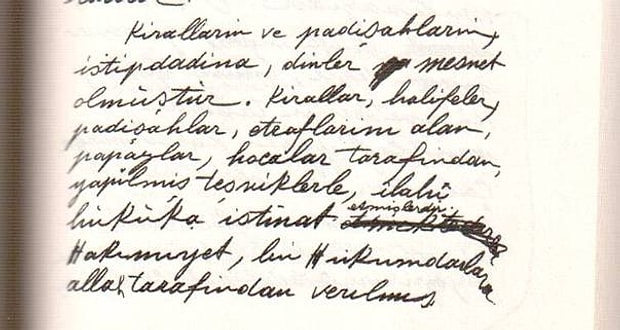 Kiralların ve padişahların,
istipdadına, dinler mesnet
olmuştur. Kirallar, halifeler,
padişahlar, etraflarını alan,
papazlar, hocalar tarafından,
yapılmış teşviklerle, ilahî
hukuka istinat etmişlerdir.
Hakimiyet, bu Hükümdarlara
allah tarafından verilmiş